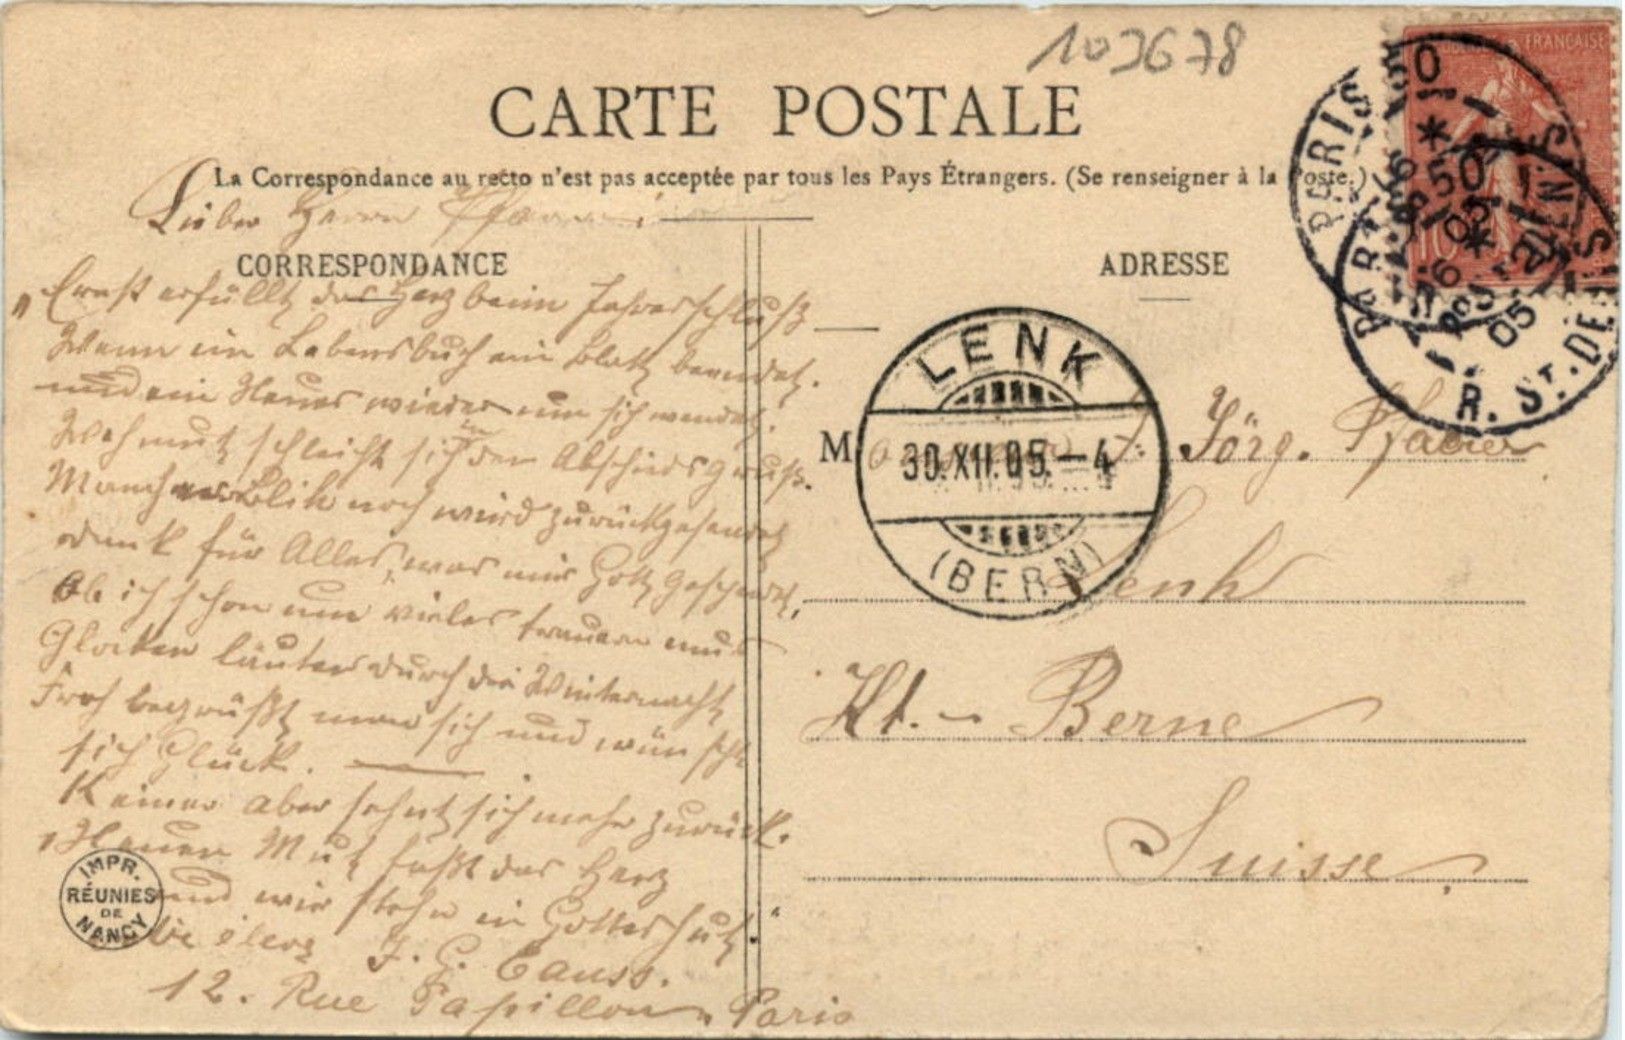 103678
CARTE POSTALE
La Correspondance au recto n'est pas acceptée par tous les Pays Étrangers. (Se renseigner à la Poste.)
Lieber Herrn
CORRESPONDANCE
„Ernst erfüllt das Herz beim Jahresschluß
Wenn ein Lebensbuch ein Blatt beendet.
und ein Neues wieder um sich wendet.
Wehmut schleicht sich in den Abschiedsgruß.
Mancher Blik noch wird zurückgesendet
dank für Alles, was mir Gott gespendet,
Ob ich schon um vieles trauern muß
Glocken läuten durch die Winternacht
Froh begrüßt man sich und wünscht
sich Glück.
Keiner aber sehnt sich mehr zurück.
„Neuen Mut faßt das Herz
und wir stehn in Gottes Hut."
J. G. Causs.
12. Rue Papillon, Paris
IMPR.
RÉUNIES
DE
NANCY
ADRESSE
M J. Jörg. Pfarrer
Lenk
Kt. - Berne
Suisse
LENK
30.XII.05.–4
(BERN)
FRANÇAISE
10
PARIS
R. ST. DENIS
05